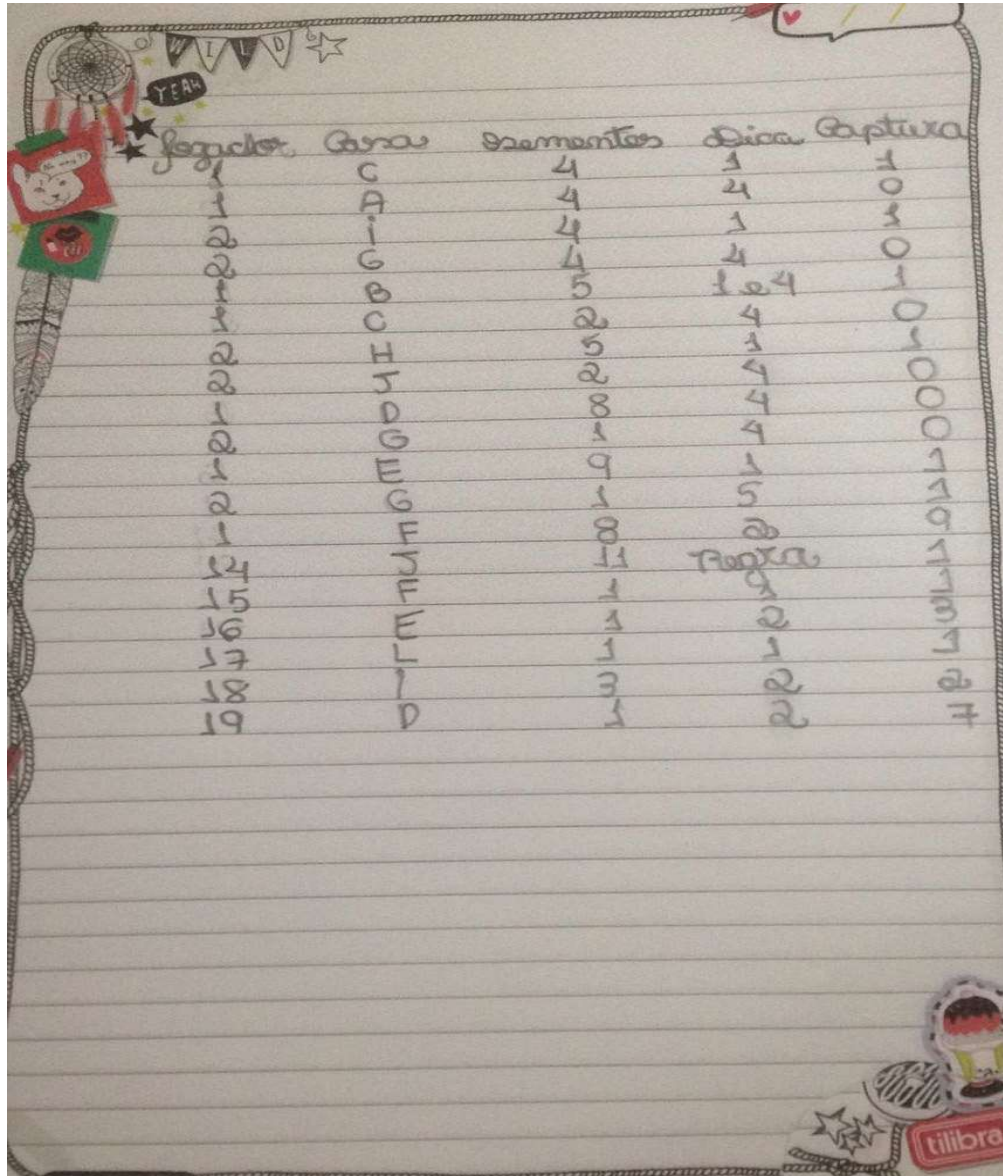 WILD
YEAH
Jogador Casa Sementes Dica Captura
1 C 4 1 1
1 A 4 4 0
2 I 4 1 1
2 G 4 4 0
1 B 5 1 e 4 1
1 C 2 4 0
2 I 5 1 1
2 2 4 0
1 D 8 4 0
2 G 1 4 0
1 E 9 1 1
2 G 1 5 1
1 F 8 2 9
14 J 11 Regra 1
15 F 1 1 1
16 E 1 2 3
17 L 1 1 1
18 I 3 2 2
19 D 1 2 7
tilibra